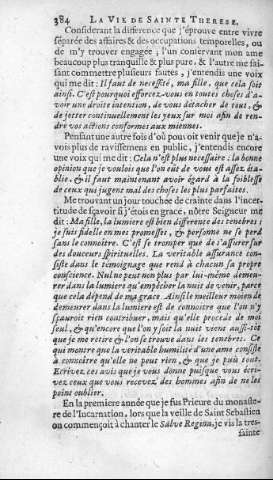 384 LA VIE DE SAINTE THERESE.
Considerant la difference que j'éprouve entre vivre
séparée des affaires & des occupations temporelles, ou
de m'y trouver engagée ; l'un conservant mon ame
beaucoup plus tranquille & plus pure, & l'autre me fai-
sant commettre plusieurs fautes, j'entendis une voix
qui me dit : Il faut de necessité, ma fille, que cela soit
ainsi. C'est pourquoi efforcez-vous en toutes choses d'a-
voir une droite intention, de vous détacher de tout, &
de jetter continuellement les yeux sur moi afin de ren-
dre vos actions conformes aux miennes.
Pensant une autre fois d'où pouvoit venir que je n'a-
vois plus de ravissemens en public, j'entendis encore
une voix qui me dit : Cela n'est plus necessaire : la bonne
opinion que je voulois que l'on eût de vous est assez éta-
blie, & il faut maintenant avoir égard à la foiblesse
de ceux qui jugent mal des choses les plus parfaites.
Me trouvant un jour touchée de crainte dans l'incer-
titude de sçavoir si j'étois en grace, nôtre Seigneur me
dit : Ma fille, la lumiere est bien differente des tenebres :
je suis fidelle en mes promesses, & personne ne se perd
sans le connoître. C'est se tromper que de s'assurer sur
des douceurs spirituelles. La veritable assurance con-
siste dans le témoignage que rend à chacun sa propre
conscience. Nul ne peut non plus par lui-même demeu-
rer dans la lumiere qu'empêcher la nuit de venir, parce
que cela dépend de ma grace. Ainsi le meilleur moien de
demeurer dans la lumiere est de connoître que l'on n'y
sçauroit rien contribuer, mais qu'elle procede de moi
seul, & qu'encore que l'on y soit la nuit viens aussi-tôt
que je me retire & l'on se trouve dans les tenebres. Ce
qui montre que la veritable humilité d'une ame consiste
à connoître qu'elle ne peut rien, & que je puis tout.
Ecrivez ces avis que je vous donne puisque vous écri-
vez ceux que vous recevez des hommes afin de ne les
point oublier.
En la premiere année que je fus Prieure du monaste-
re de l'Incarnation, lors que la veille de Saint Sebastien
on commençoit à chanter le Salve Regina, je vis la tres-
sainte